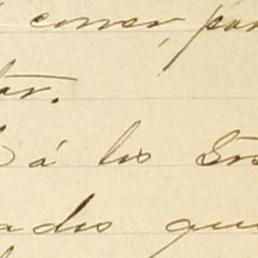 correr, par
tar.
á los Srs
ados que